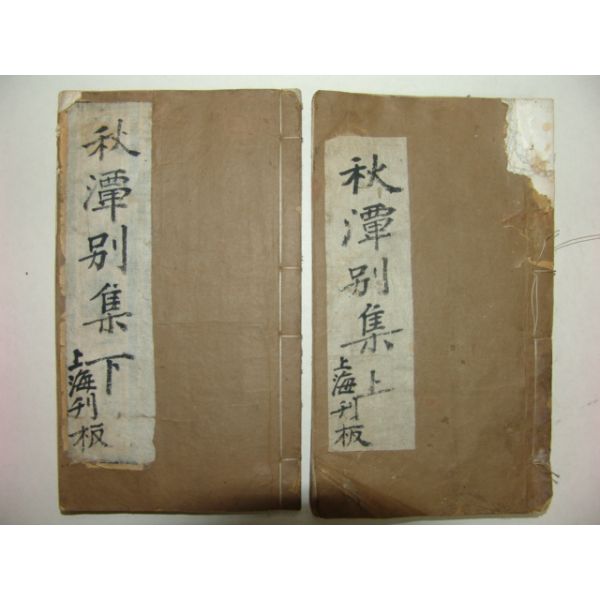 秋潭別集上
上海刊板
秋潭別集下
上海刊板